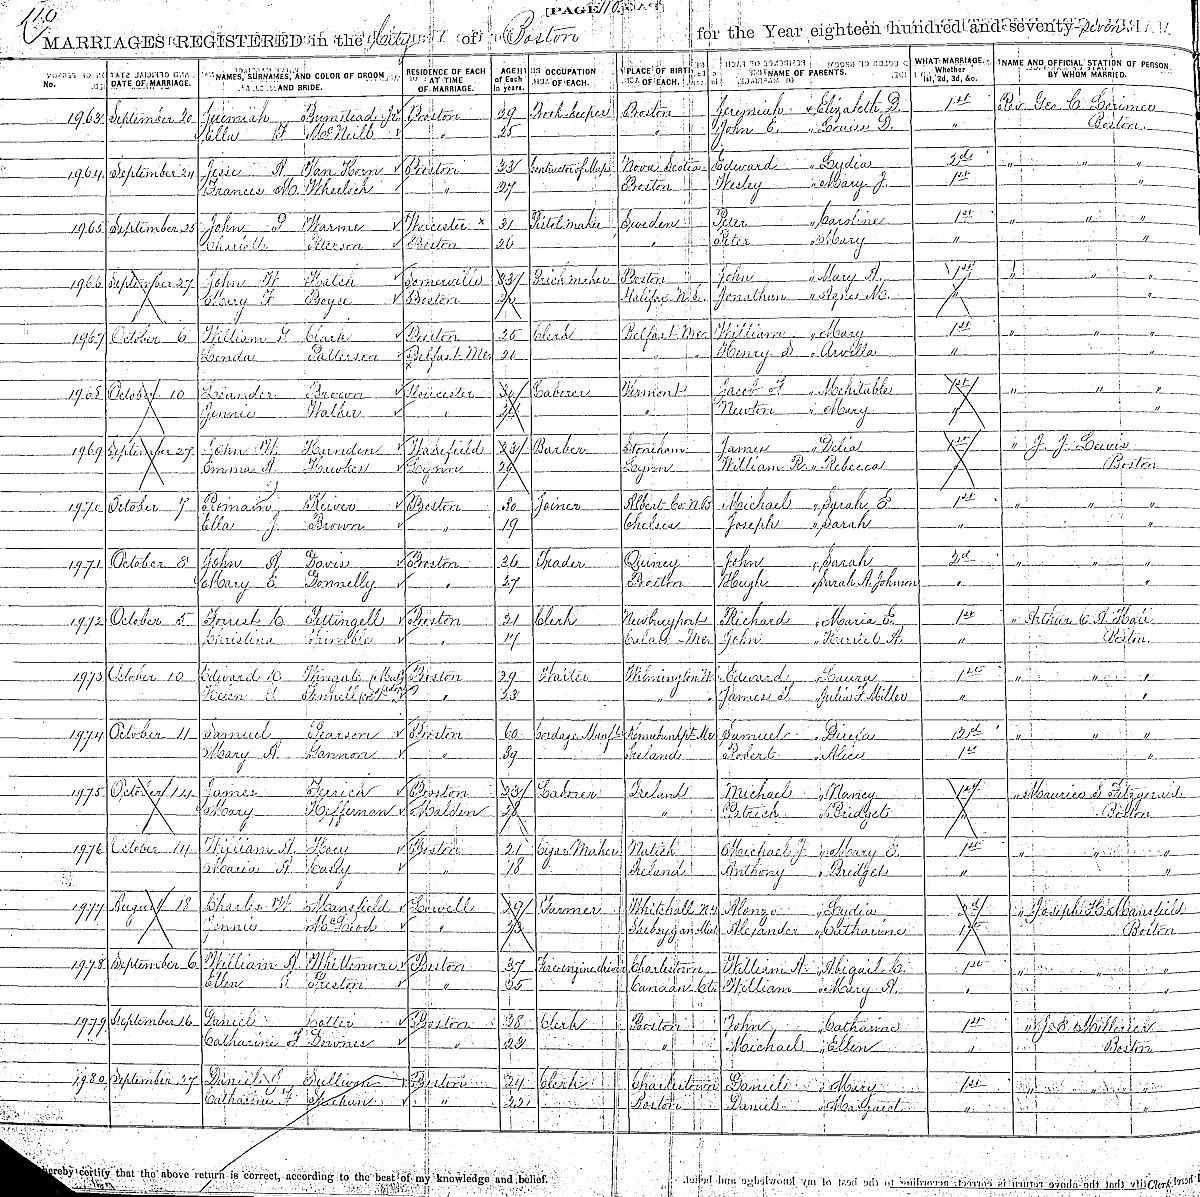 110
[PAGE 110.]
MARRIAGES REGISTERED in the City of Boston for the Year eighteen hundred and seventy-seven
No. DATE OF MARRIAGE. NAMES, SURNAMES, AND COLOR OF GROOM AND BRIDE. RESIDENCE OF EACH AT TIME OF MARRIAGE. AGE of Each in years. OCCUPATION OF EACH. PLACE OF BIRTH OF EACH. NAMES OF PARENTS. WHAT MARRIAGE. Whether 1st, 2d, 3d, &c. NAME AND OFFICIAL STATION OF PERSON BY WHOM MARRIED.
1963 September 20 Jeremiah Bumstead Jr Boston 29 Book-keeper Boston Jeremiah & Elizabeth D. 1st Rev. Geo. C. Lorimer
Ella McNeill " 25 " John E. " Louisa D. " Boston.
1964 September 24 Van Horn Boston 33 Nova Scotia Edward " Lydia 2d " " "
Frances M. " 27 Boston Wesley " Mary J. 1st "
1965 September 25 John Warme Worcester x 21 Pistol maker Sweden Peter " Caroline 1st " " "
Charlotte Peterson Boston 26 " Peter " Mary " "
1966 September 27 John W. Hatch Somerville 33 Brick maker Boston John " Mary A. 1st " " "
Mary F. Boyce Boston Halifax N.S. Jonathan " Agnes M. " "
1967 October 6 William F. Clark Boston 25 Clerk Belfast Me. William " Mary 1st " " "
Linda Patterson Belfast Me. 21 " " Henry S. " Arvilla " "
1968 October 10 Leander Brown Worcester Laborer Vermont Jacob F. " Mehitable 1st " " "
Jennie Walker " " Newton " Mary " "
1969 September 27 John W. Harnden Wakefield 23 Barber Stoneham James " Delia 1st " J. J. Lewis
Emma A. Hawkes Lynn Lynn William R. " Rebecca " Boston
1970 October 7 Romain Boston 30 Joiner Albert Co. N.B. Michael " Sarah E. 1st " " "
Ella J. Brown " 19 Chelsea Joseph " Sarah " "
1971 October 8 John A. Davis Boston 26 Trader Quincy John " Sarah 2d " " "
Mary E. Donnelly " 27 Boston Hugh " Sarah A. Johnson " "
1972 October 5 Forrest C. Pettingell Boston 21 Clerk Newburyport Richard " Maria E. 1st " Arthur C. A. Hall
Christina Trimble " 17 Calais Me. John " Harriet A. " Boston.
1973 October 10 Edward Wingate Boston 29 Waiter Wilmington Edward " Laura 1st " " "
Fennell " 23 " " James " Julia F. Miller " "
1974 October 11 Samuel Pearson Boston 60 Cordage Manf. Kennebunkport Me. Samuel " 2d " " "
Mary A. Gannon " 39 Ireland Robert " Alice 1st "
1975 October 14 James Boston 23 Laborer Ireland Michael " Nancy 1st " Maurice S. Fitzgerald
Mary Heffernan Malden 28 " Patrick " Bridget " Boston
1976 October 14 William A. Boston 21 Cigar Maker Natick Michael J. " Mary E. 1st " " "
Maria A. Casey " 18 Ireland Anthony " Bridget " "
1977 August 18 Charles W. Mansfield Lowell 29 Farmer Whitehall N.Y. Alonzo " Lydia 2d " Joseph H. Mansfield
Jennie McLeod " 23 Sheboygan Alexander " Catharine 1st Boston
1978 September 6 William A. Whittemore Boston 37 Fire engine driver Charlestown William A. " Abigail C. 1st " " "
Ellen Preston " 35 Canaan Ct. William " Mary A. " "
1979 September 16 Daniel Boston 38 Clerk Boston John " Catharine 1st " J. B. Millerick
Catharine F. Downes " 23 " Michael " Ellen " Boston
1980 September 27 Daniel J. Sullivan Boston 24 Clerk Charlestown Daniel " Mary 1st " " "
Catharine F. Sheehan " 22 Boston Daniel " Margaret " "
hereby certify that the above return is correct, according to the best of my knowledge and belief.